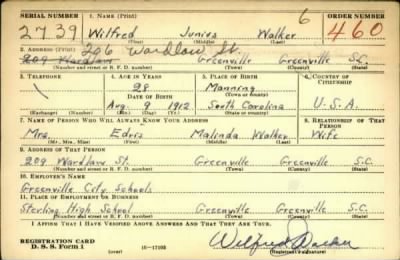 SERIAL NUMBER 1. NAME (Print) 6 ORDER NUMBER
2739 Wilfred Junius Walker 460
(First) (Middle) (Last)
206 Wardlaw St.
2. ADDRESS (Print)
209 Wardlaw Greenville Greenville S.C.
(Number and street or R. F. D. number) (Town) (County) (State)
3. TELEPHONE 4. AGE IN YEARS 5. PLACE OF BIRTH 6. COUNTRY OF CITIZENSHIP
28 Manning
DATE OF BIRTH (Town or county)
Aug. 9 1912 South Carolina U.S.A.
(Exchange) (Number) (Mo.) (Day) (Yr.) (State or country)
7. NAME OF PERSON WHO WILL ALWAYS KNOW YOUR ADDRESS 8. RELATIONSHIP OF THAT PERSON
Mrs. Edris Malinda Walker Wife
(Mr., Mrs., Miss) (First) (Middle) (Last)
9. ADDRESS OF THAT PERSON
209 Wardlaw St. Greenville Greenville S.C.
(Number and street or R. F. D. number) (Town) (County) (State)
10. EMPLOYER'S NAME
Greenville City Schools
11. PLACE OF EMPLOYMENT OR BUSINESS
Sterling High School Greenville Greenville S.C.
(Number and street or R. F. D. number) (Town) (County) (State)
I AFFIRM THAT I HAVE VERIFIED ABOVE ANSWERS AND THAT THEY ARE TRUE.
REGISTRATION CARD
D. S. S. Form 1 (over) 16-17105
Wilfred Walker
(Registrant's signature)